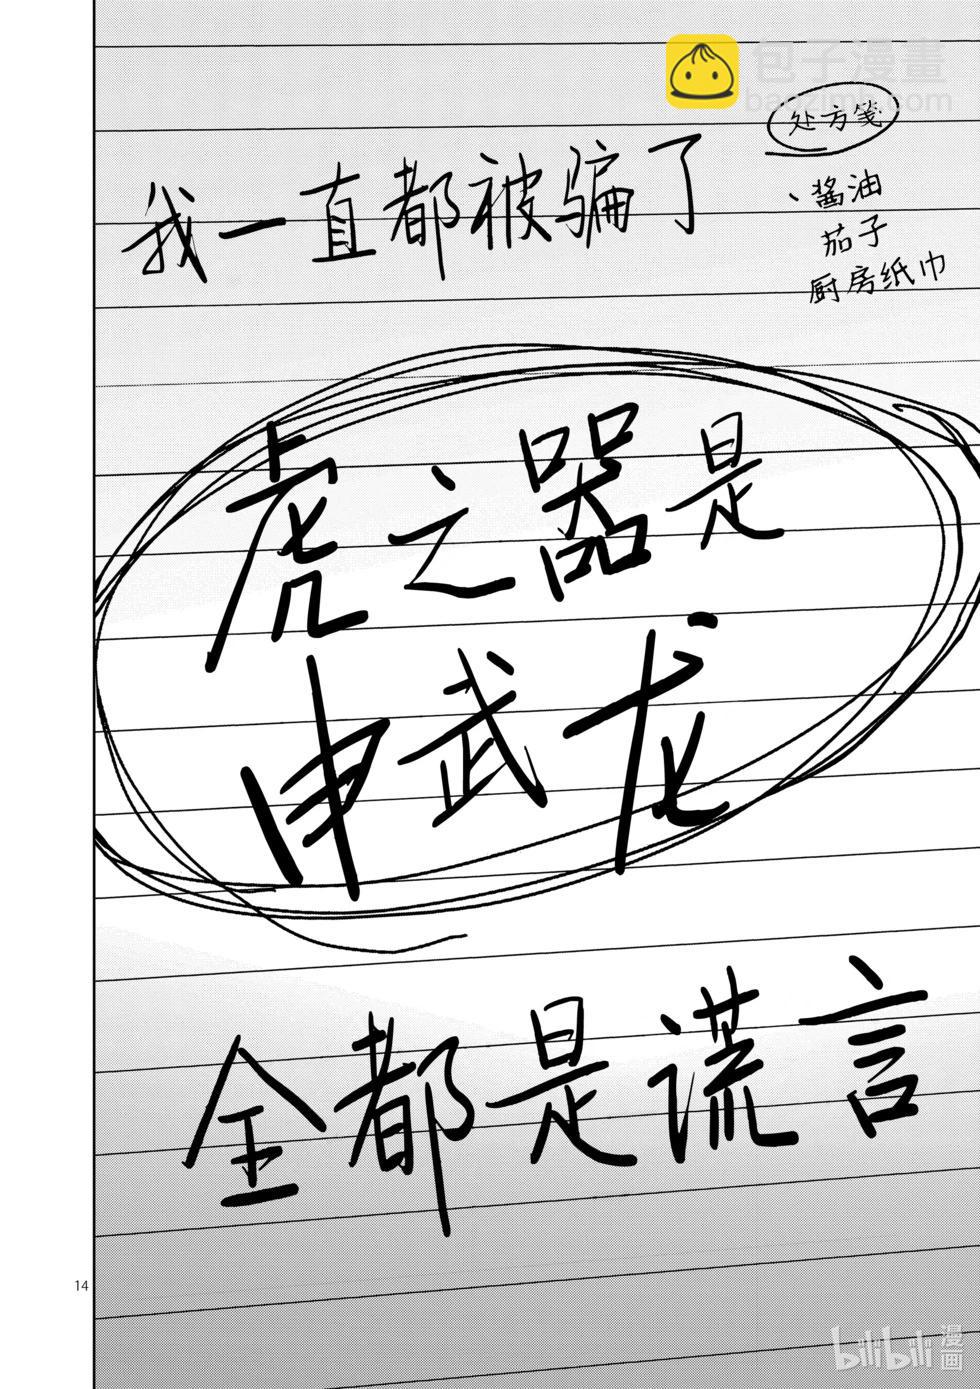 包子漫畫
baozimh.com
处方笺
、酱油
茄子
厨房纸巾
我一直都被骗了
虎之器是
申武龙
全都是谎言
14
bilibili
漫画